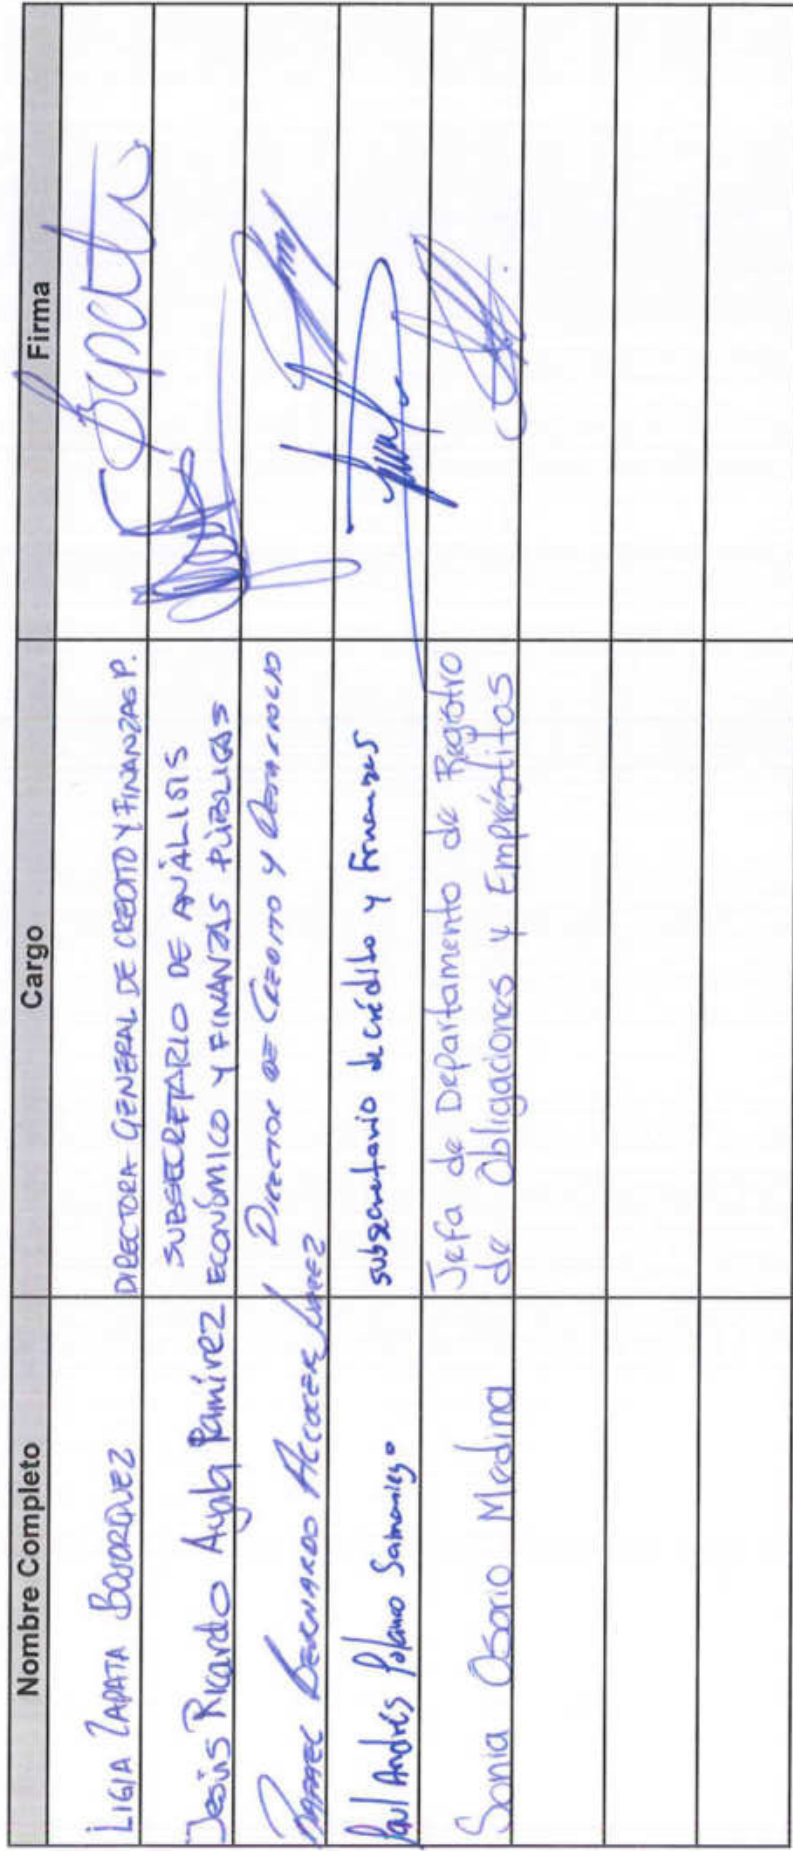 Nombre Completo Cargo Firma
LIGIA ZAPATA BOJORQUEZ DIRECTORA GENERAL DE CREDITO Y FINANZAS P.
Jesús Ricardo Ayala Ramírez SUBSECRETARIO DE ANÁLISIS
ECONÓMICO Y FINANZAS PÚBLICAS
RAFAEL BERNARDO ALCOCER LÓPEZ DIRECTOR DE CREDITO Y
Paul Andrés Polanco Samaniego subsecretario de crédito y finanzas
Sonia Osorio Medina Jefa de Departamento de Registro
de Obligaciones y Empréstitos